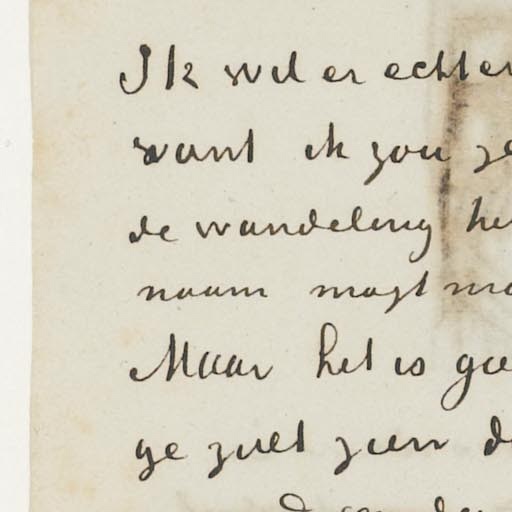 Ik wil er echter
want ik zou ze
de wandeling he
naam magt ma
Maar het is goe
ge zult zien d